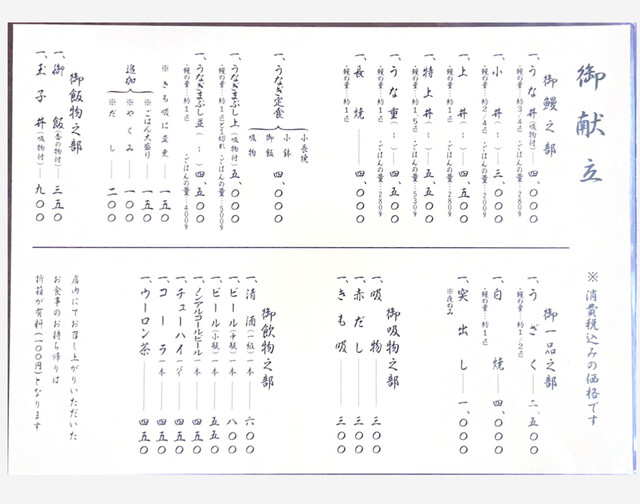 御献立
※消費税込みの価格です
御鰻之部
一、うな丼(吸物付)四、〇〇〇
・鰻の量…約3/4匹 ・ごはんの量…280g
一、小丼(〃)三、〇〇〇
・鰻の量…約2/4匹 ・ごはんの量…200g
一、上丼(〃)四、五〇〇
・鰻の量…約1匹 ・ごはんの量…280g
一、特上丼(〃)五、五〇〇
・鰻の量…約1.5匹 ・ごはんの量…530g
一、うな重(〃)四、五〇〇
・鰻の量…約1匹 ・ごはんの量…280g
一、長焼 四、〇〇〇
・鰻の量…約1匹
一、うなぎ定食 四、〇〇〇
小長焼
小鉢
御飯
吸物
一、うなぎまぶし上(吸物付)五、〇〇〇
・鰻の量…約1匹と1切れ ・ごはんの量…500g
一、うなぎまぶし並(〃)四、五〇〇
・鰻の量…約1匹 ・ごはんの量…400g
※きも吸に変更 一五〇
追加
※ごはん大盛り 一五〇
※やくみ 一〇〇
※だし 二〇〇
御飯物之部
一、御飯(香の物付)三五〇
一、玉子丼(吸物付)九〇〇
御一品之部
一、うざく 二、五〇〇
・鰻の量…約1/2匹
一、白焼 四、〇〇〇
・鰻の量…約1匹
一、突出し 一、〇〇〇
※夜のみ
御吸物之部
一、吸物 三〇〇
一、赤だし 三〇〇
一、きも吸 三〇〇
御飲物之部
一、清酒(一級)一本 六〇〇
一、ビール(中瓶)一本 八〇〇
一、ビール(小瓶)一本 五五〇
一、ノンアルコールビール一本 四五〇
一、チューハイ 四五〇
一、コーラ一本 四五〇
一、ウーロン茶 四五〇
店内にてお召し上がりいただいた
お食事のお持ち帰りは
折箱が有料(一〇〇円)となります